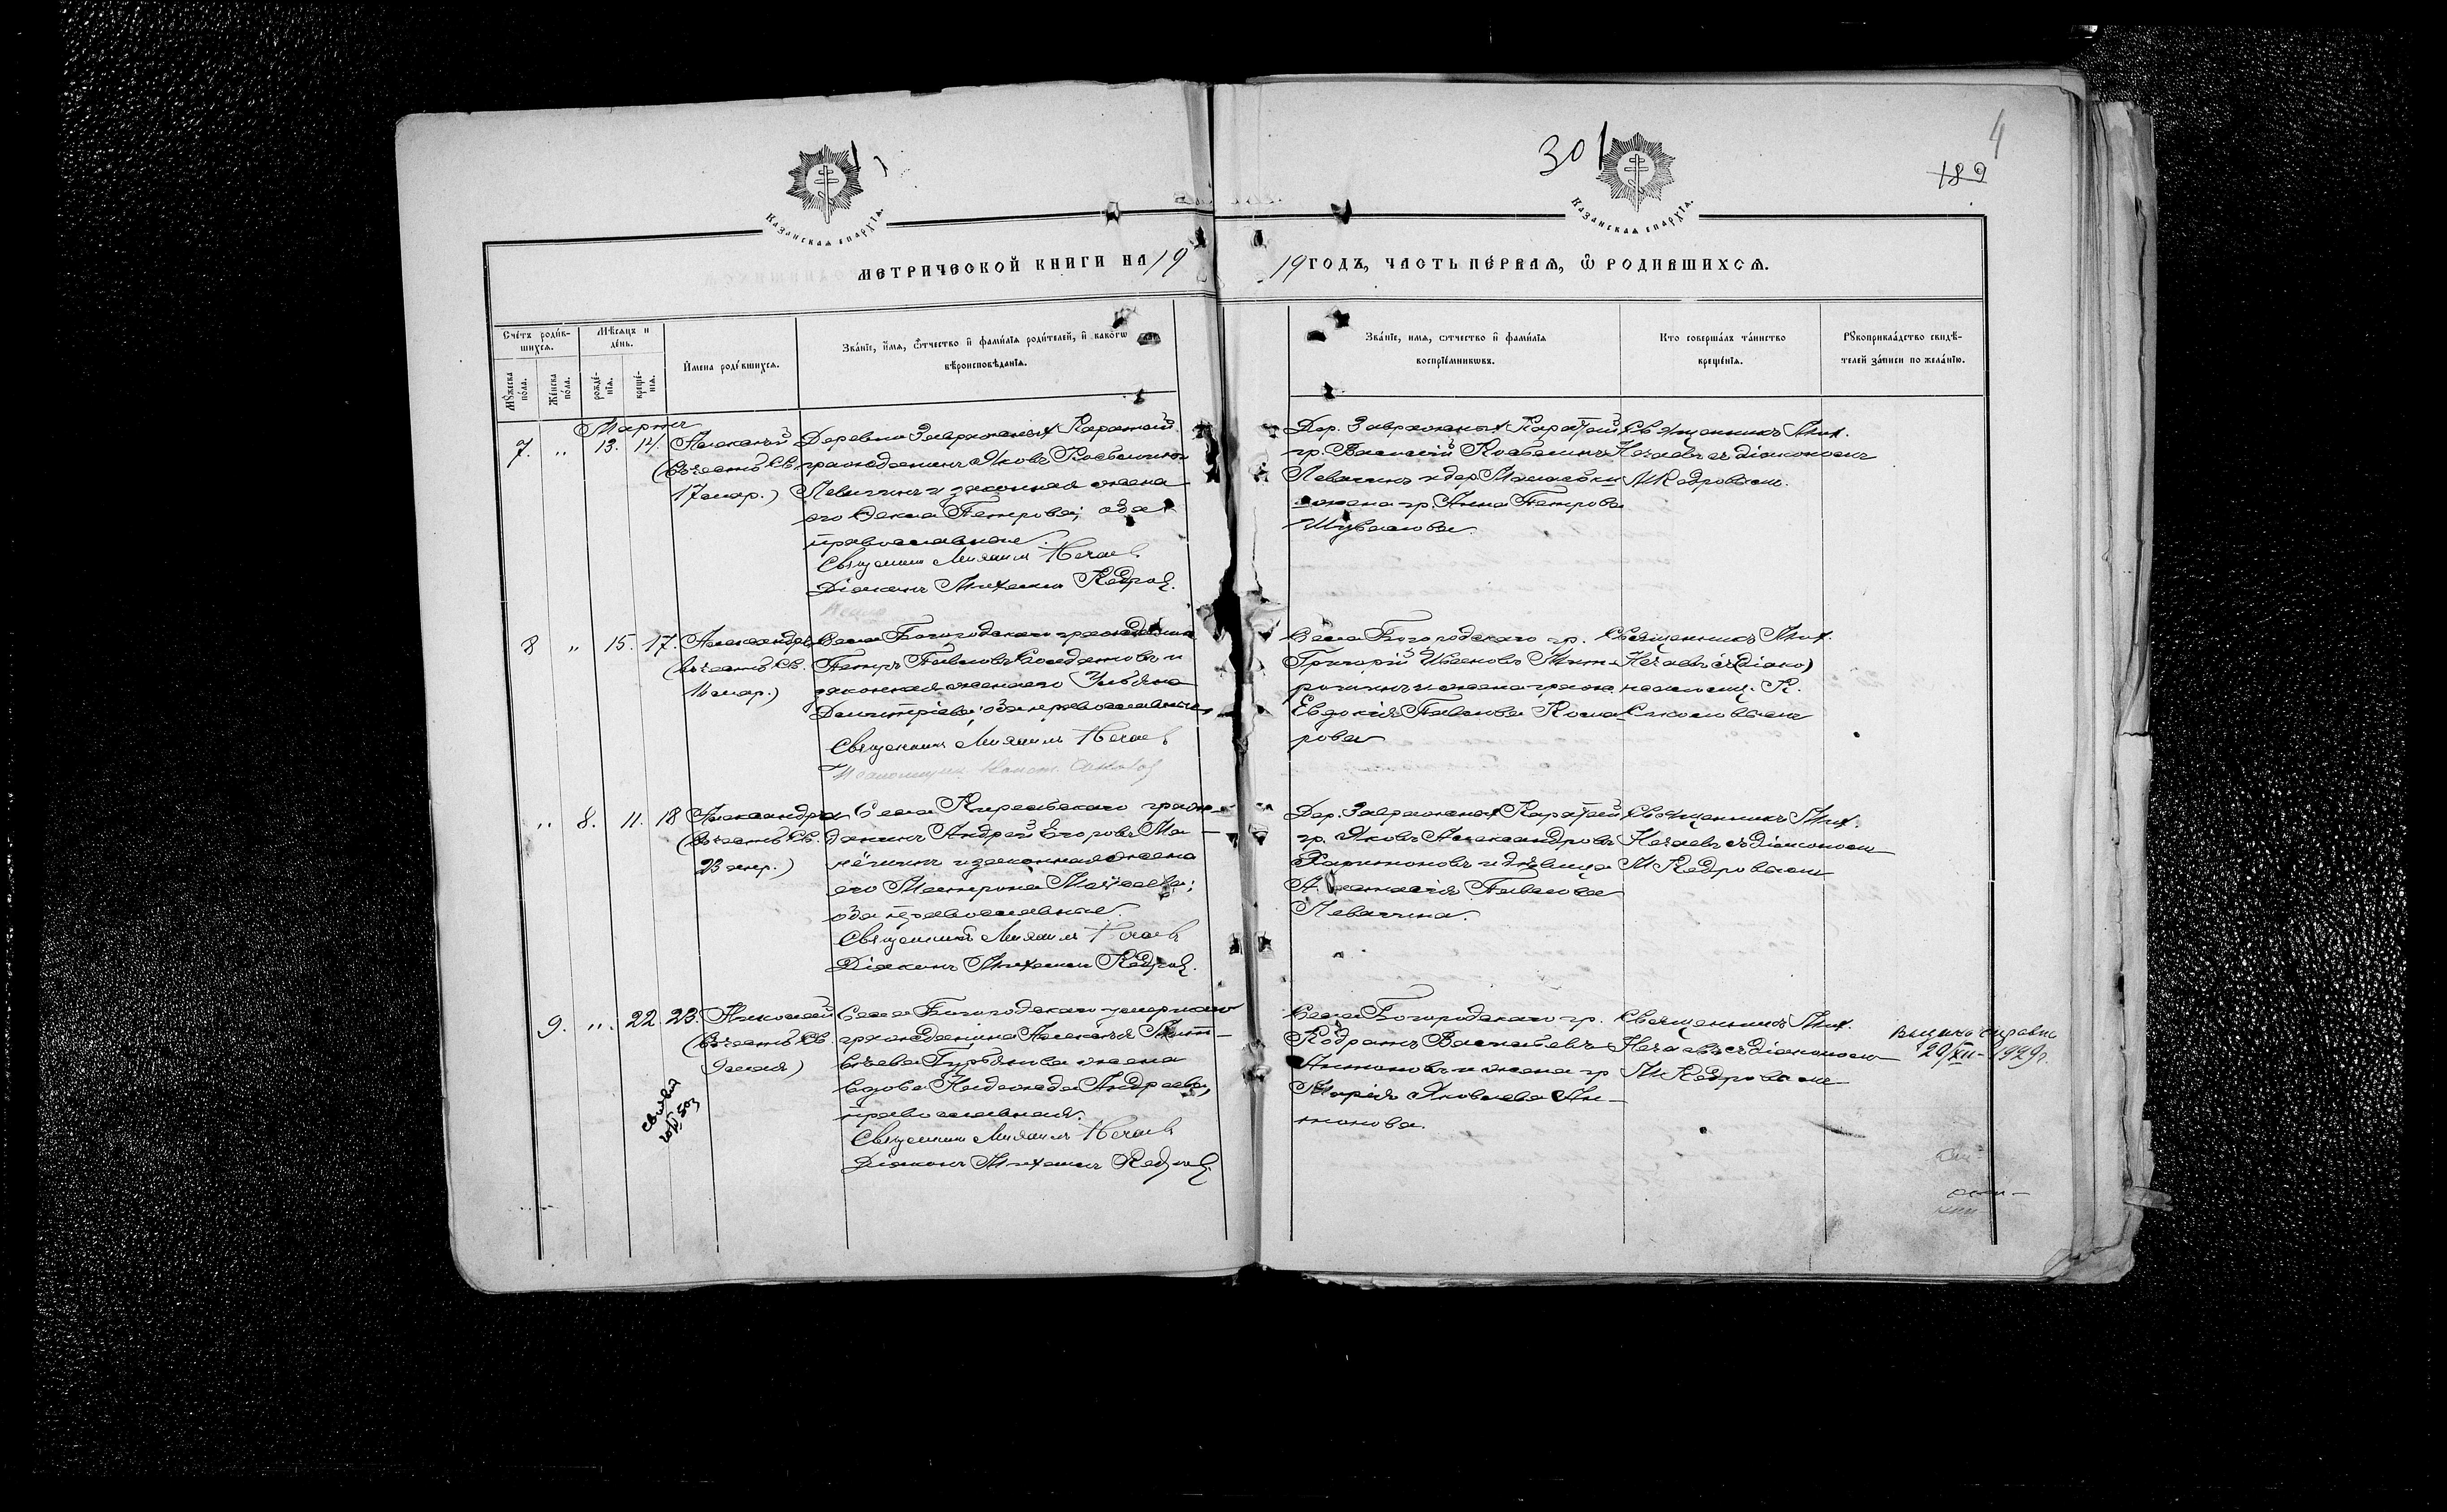 301
4
189
КАЗАНСКАЯ ЕПАРХІА.
КАЗАНСКАЯ ЕПАРХІА.
МЕТРИЧЕСКОЙ КНИГИ НА 19
19 ГОДЪ, ЧАСТЬ ПЕ́РВАЯ, Ѡ РОДИВШИХСЯ.
Сче́тъ роди́в-
шихся.
Мѣсяцъ и
де́нь.
Мꙋ́жеска
по́ла.
Же́нска
по́ла.
рожде́-
нїѧ.
креще́-
нїѧ.
И҆мена роди́вшихсѧ.
Зва́нїе, и҆́мѧ, ѻ҆́тчество и҆ фами́лїѧ роди́телей, и҆ како́гѡ
вѣроисповѣ́данїѧ.
Зва́нїе, имѧ, ѻтчество и҆ фами́лїѧ
воспрїе́мникѡвъ.
Кто соверша́лъ та́инство
креще́нїѧ.
Рꙋкоприкла́дство свидѣ́-
телей за́писи по жела́нїю.
Мартъ
7. " 13. 14. Алексѣй
(въ честь Св.
17 мар.)
Деревни Завражныхъ Каратай
гражданинъ Яковъ
Левагинъ и законная жена
его Фекла Петрова; оба
православные.
Священник Михаил Нечаев
Діаконъ Михаилъ Кедров.
Дер. Завражныхъ Каратай
гр. Василій
Левагинъ и дер.
жена гр. Анна Петрова
Шувалова.
Священникъ Мих.
Нечаевъ съ діакономъ
М Кедровымъ.
8 " 15. 17. Александръ
(въ честь Св.
мар.)
Села Богородскаго гражданинъ
Петръ Павловъ и
законная жена его Ульяна
Димитріева; оба православные,
Священник Михаилъ Нечаев
Псаломщик Конст. Соколов
Села Богородскаго гр.
Григорій Ивановъ Мит-
и жена граж.
Евдокія Павлова
рова
Священникъ Мих.
Нечаевъ съ (діако)
псаломщ. К.
Соколовымъ
" 8. 11. 18 Александра
(въ честь Св.
23 апр.)
Села Кирельскаго граж-
данинъ Андрей Егоровъ Ма-
и законная жена
его Матрона
оба православные.
Священникъ Михаилъ Нечаев
Діаконъ Михаилъ Кедров.
Дер. Завражныхъ Каратай
гр. Яковъ Александровъ
Харитоновъ и дѣвица
Анастасія Павлова
Левагина.
Священникъ Мих.
Нечаевъ съ діакономъ
М Кедровымъ
9. " 22. 23. Николай
(въ честь Св.
9 мая)
Села Богородскаго умершаго
гражданина Алексѣя Мат-
вѣева жена
вдова Надежда Андреева,
православная.
Священник Михаилъ Нечаев
Діаконъ Михаилъ Кедров.
Села Богородскаго гр.
Кодратъ Васильевъ
Антоновъ и жена гр
Марія Яковлева Ан-
тонова.
Священникъ Мих.
Нечаевъ съ діакономъ
М Кедровымъ
Выдана справка
20/XII-1949г.